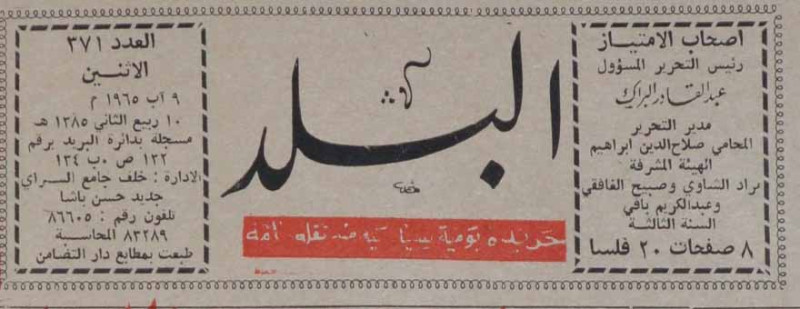 اصحاب الامتياز
رئيس التحرير المسؤول
عبدالقادر البراك
مدير التحرير
المحامي صلاح الدين ابراهيم
الهيئة المشرفة
نزاد الشاوي وصبيح الغافقي
وعبدالكريم بافي
السنة الثالثة
٨ صفحات ٢٠ فلسا
البلد
جريدة يومية سياسية
العدد ٣٧١
الاثنين
٩ آب ١٩٦٥ م
١٠ ربيع الثاني ١٣٨٥ هـ
مسجلة بدائرة البريد برقم
١٣٢ ص ٠ب ١٣٤
الادارة : خلف جامع السراي
جديد حسن باشا
تلفون رقم : ٨٦٦٠٥
٨٣٢٨٩ المحاسبة
طبعت بمطابع دار التضامن